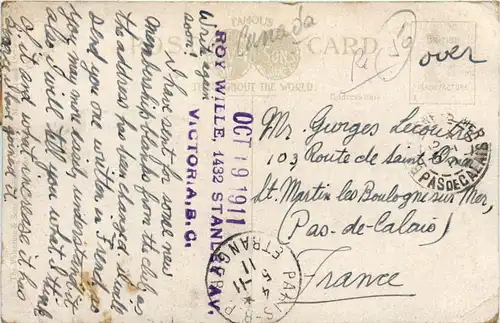 FAMOUS
POST CARD
THROUGHOUT THE WORLD.
Canada
over
Write again
soon!
I have sent for some new
membership blanks from the club, as
the address has been changed. I will
send you one written in French, so
you may more easily understand it
also I will tell you what I think
of it and what increase it has
ROY WILLE, 1432 STANLEY AV.
VICTORIA, B.C.
OCT 19 1911
Mr. Georges Lecoutre
103 Route de Saint-Omer
St. Martin les Boulogne sur Mer,
(Pas-de-Calais)
France
PAS DE CALAIS
PARIS
ETRANGER